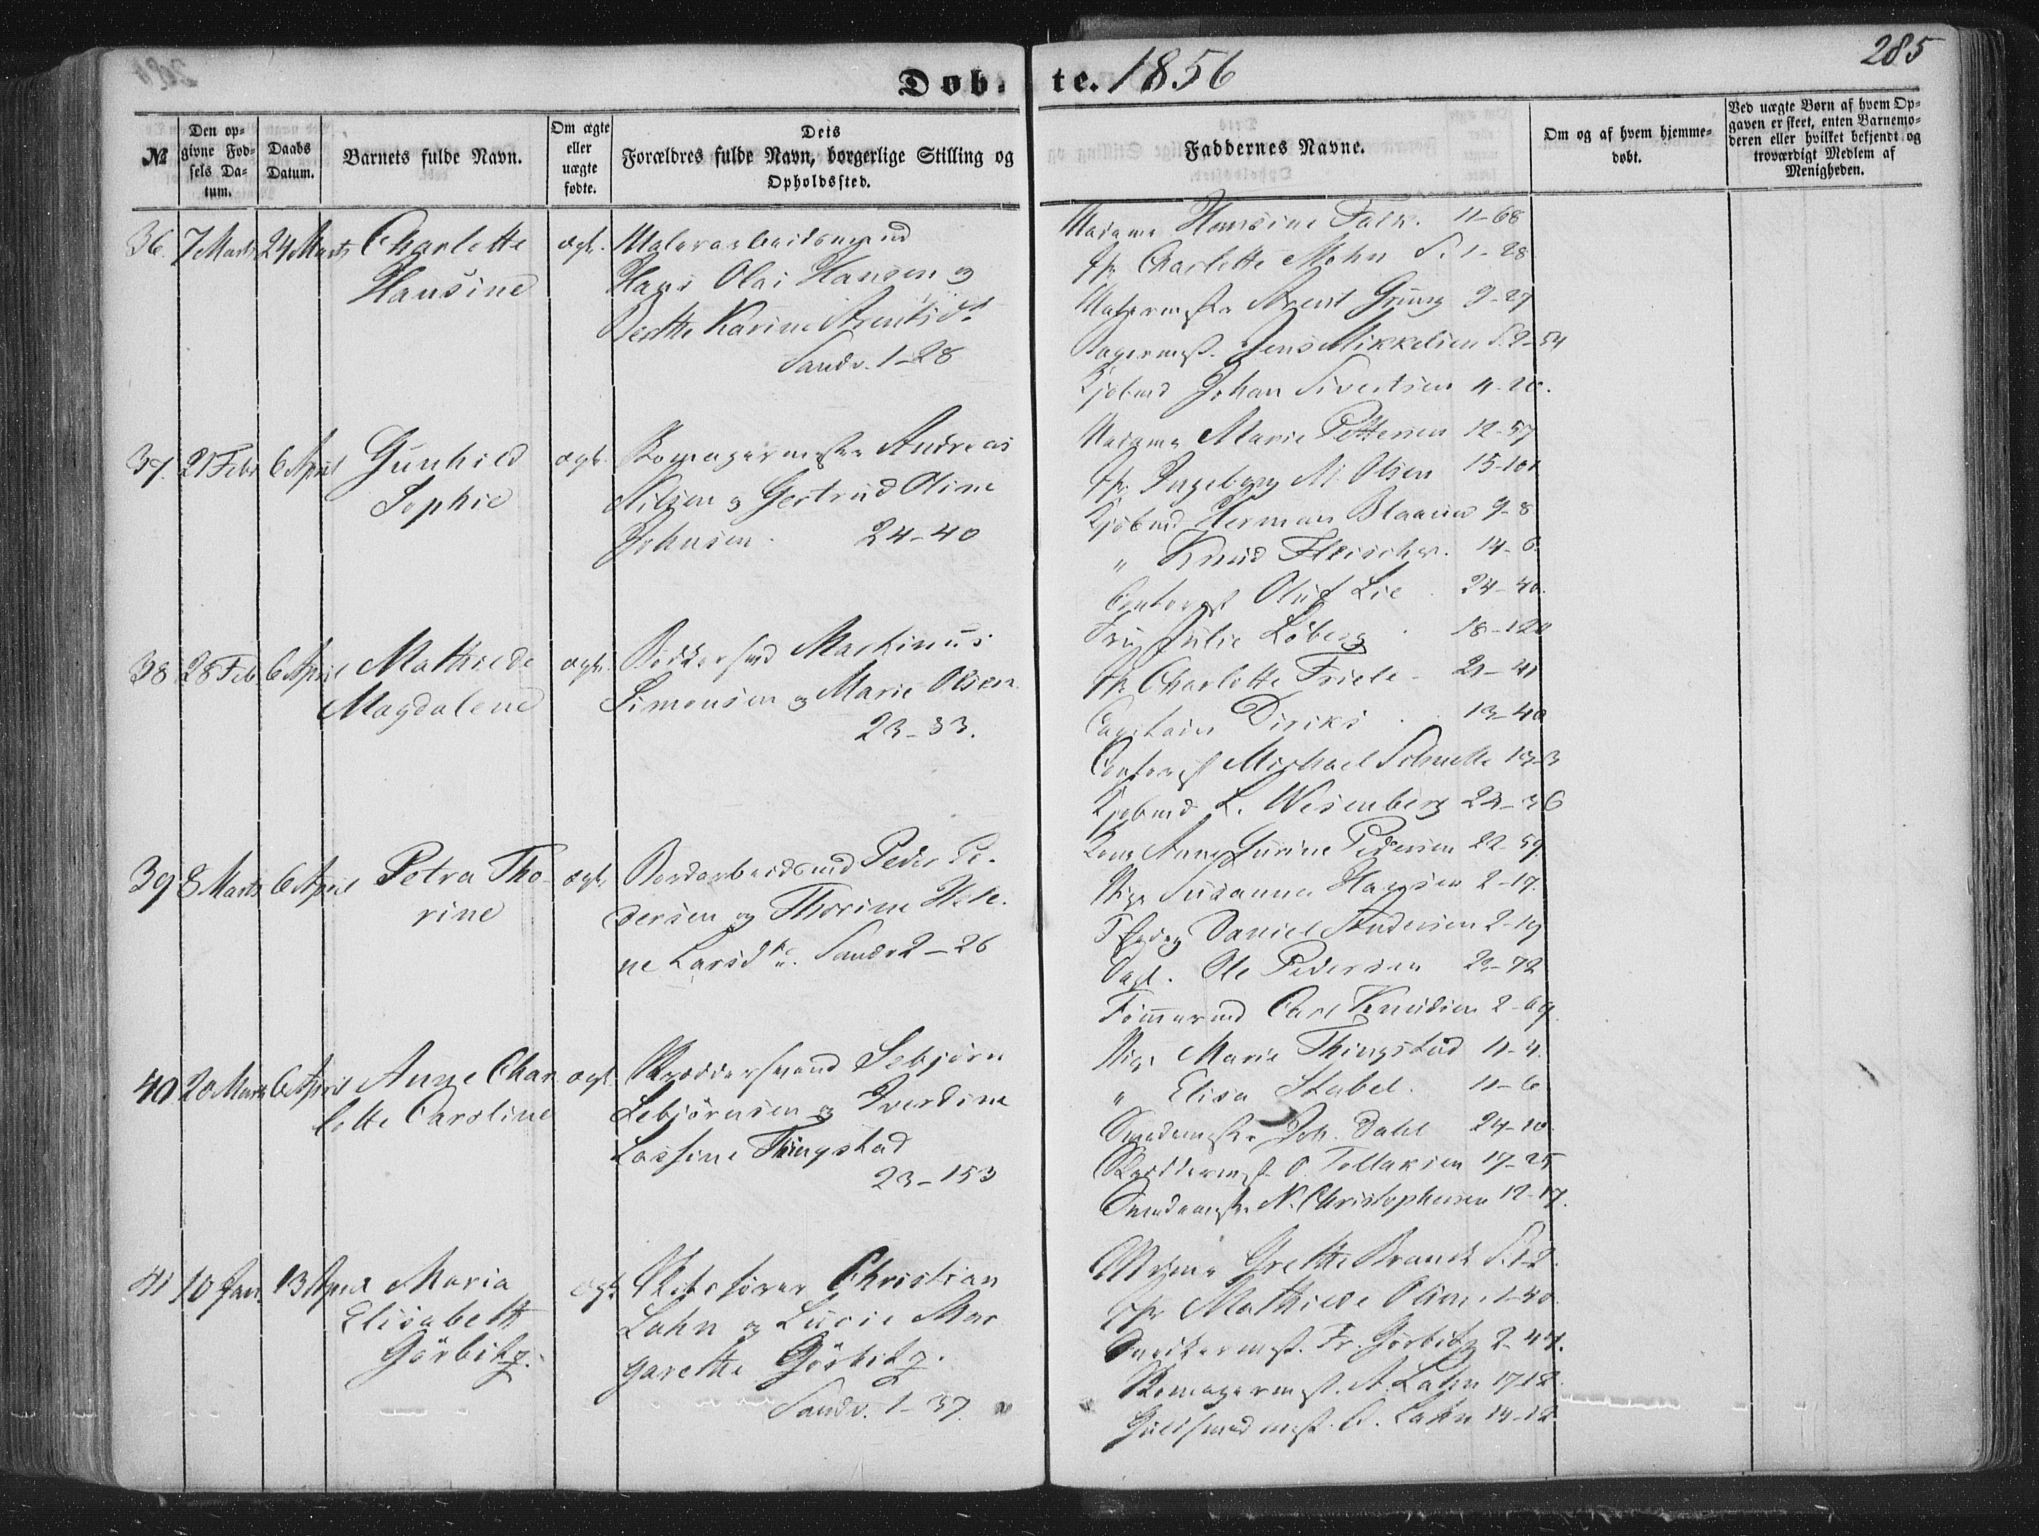 285
Døb- te. 1856
№
Den opgivne Fødsels Datum.
Daabs Datum.
Barnets fulde Navn.
Om ægte eller uægte fødte.
Dets Forældres fulde Navn, borgerlige Stilling og Opholdssted.
Faddernes Navne.
Om og af hvem hjemmedøbt.
Ved uægte Børn af hvem Opgaven er skeet, enten Barnemoderen eller hvilket bekjendt og troværdigt Medlem af Menigheden.
36. 7 Marts 24 Marts Charlotte
Hansine
ægt.
Hans Olai Hansen og
Berthe Karine
Sandv. 1-28
Madame Hansine Falk. 11-68
Charlotte Mohn S. 1-28
Arent Grung 9-27
Jens Mikkelsen S. 2-54
Kjøbmd Johan Sivertsen 4-20.
37. 21 Febr 6 April Gunhild
Sophie
ægt. Skomagermester Andreas
Nilsen og Gertrud Oline
Johnsen. 24-40
Madame Marie Pettersen 12-57
Ingeborg M. Olsen 15-101
Kjøbmd Herman Blaauw 9-8
" Knud Fleischer. 14-6
Contorist Oluf Lie. 24-40.
38 28 Feb. 6 April Mathilde
Magdalene
ægt. Bødkersvd Martinus
Simonsen og Marie Olsen
23-33.
Fru Julie Loberg. 18-120
Charlotte Friele - 21-41
Capitain Diriks. 13-40
Contorist Michael
Kjøbmd L. Wesenberg 23-36
39 8 Marts 6 April Petra Tho-
rine
ægt. Peder Pe-
dersen og Thorine Hele-
ne Larsdtr. Sandv 2-26
Kone Anne Gurine Pedersen 22-59.
Pige Susanna Hansen 2-17.
Daniel Andersen 2-19
Ole Pedersen 23-72
Tømmermd Carl Knudsen 2-69.
40 20 Marts 6 April Anne Char
lotte Caroline
ægt. Skræddersvend Sebjørn
Sebjørnsen og Iverdine
Lassine Thingstad
23-153
Pige Marie Thingstad 11-4.
" Elisa Stabel. 11-6
Smedemester Joh. Dahl 24-10.
Skræddermst. O. Tollaksen 17-25
Smedemester N. Christophersen 12-17.
41 10 Jan. 13 April Maria
Elisabeth
Görbitz.
ægt. Christian
Lahn og Lucie Mar
garethe Görbitz.
Sandv. 1-37.
Madame Grethe Brandt S. 1-2.
Mathilde Olsen 1-40.
Snedkermst. Fr. Görbitz 2-47.
Skomagermst. A. Lahn 17-12.
Guldsmedmst. C. Lahn 14-12